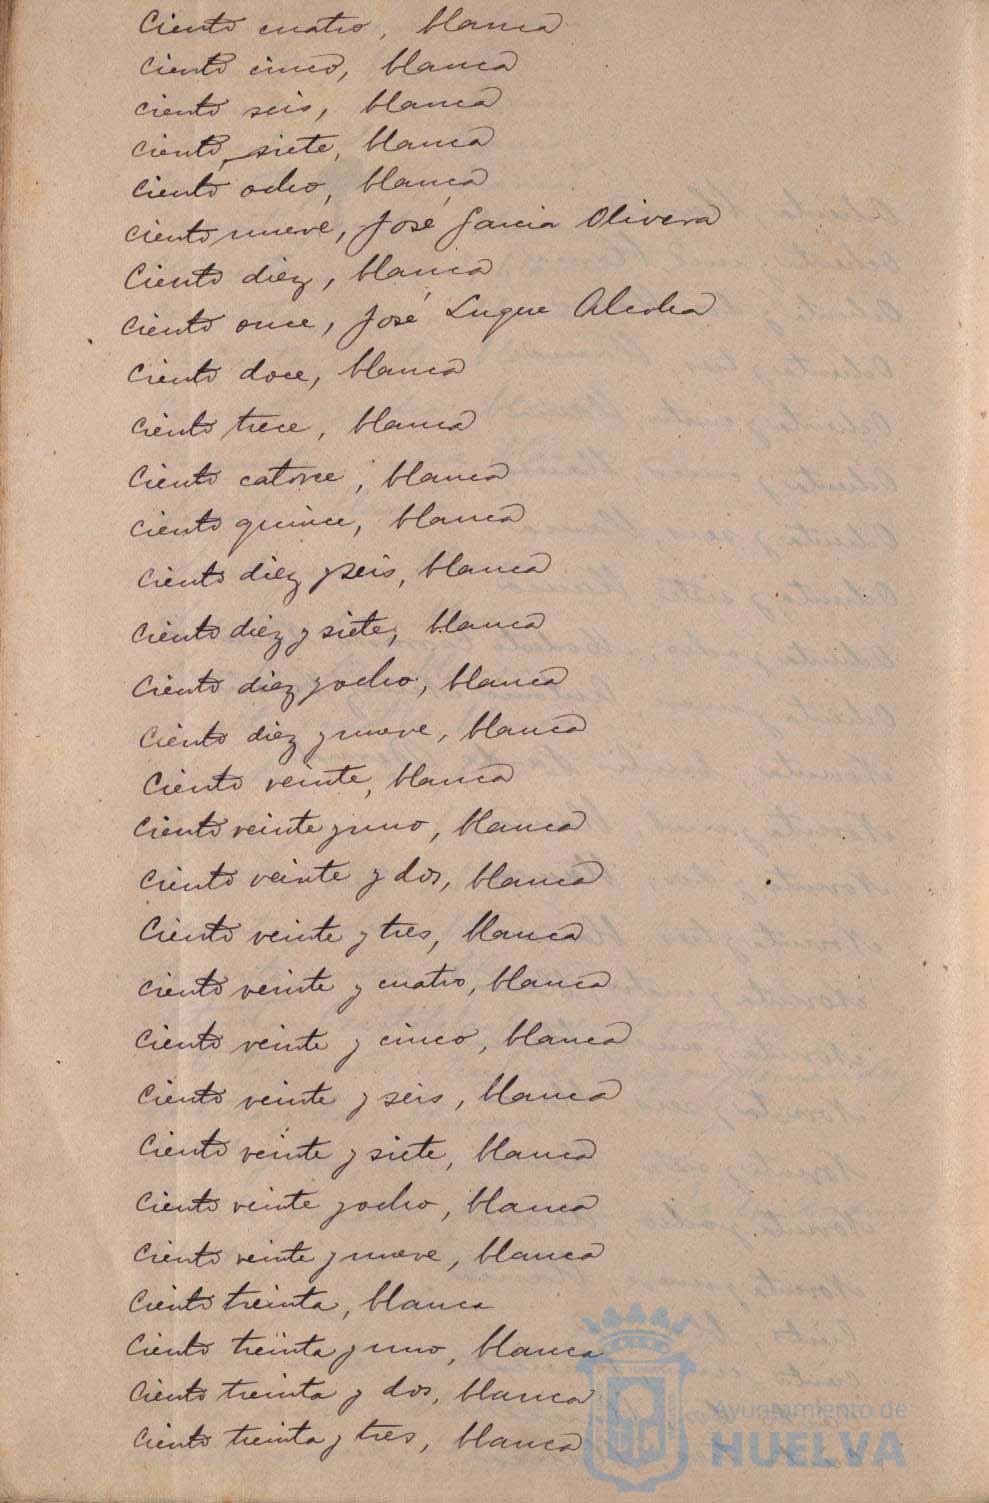 Ciento cuatro, blanca
Ciento cinco, blanca
Ciento seis, blanca
Ciento siete, blanca
Ciento ocho, blanca
Ciento nueve, José Garcia Olivera
Ciento diez, blanca
Ciento once, José Luque Alcolea
Ciento doce, blanca
Ciento trece, blanca
Ciento catorce, blanca
Ciento quince, blanca
Ciento diez y seis, blanca
Ciento diez y siete, blanca
Ciento diez y ocho, blanca
Ciento diez y nueve, blanca
Ciento veinte, blanca
Ciento veinte y uno, blanca
Ciento veinte y dos, blanca
Ciento veinte y tres, blanca
Ciento veinte y cuatro, blanca
Ciento veinte y cinco, blanca
Ciento veinte y seis, blanca
Ciento veinte y siete, blanca
Ciento veinte y ocho, blanca
Ciento veinte y nueve, blanca
Ciento treinta, blanca
Ciento treinta y uno, blanca
Ciento treinta y dos, blanca
Ciento treinta y tres, blanca
Ayuntamiento de
HUELVA